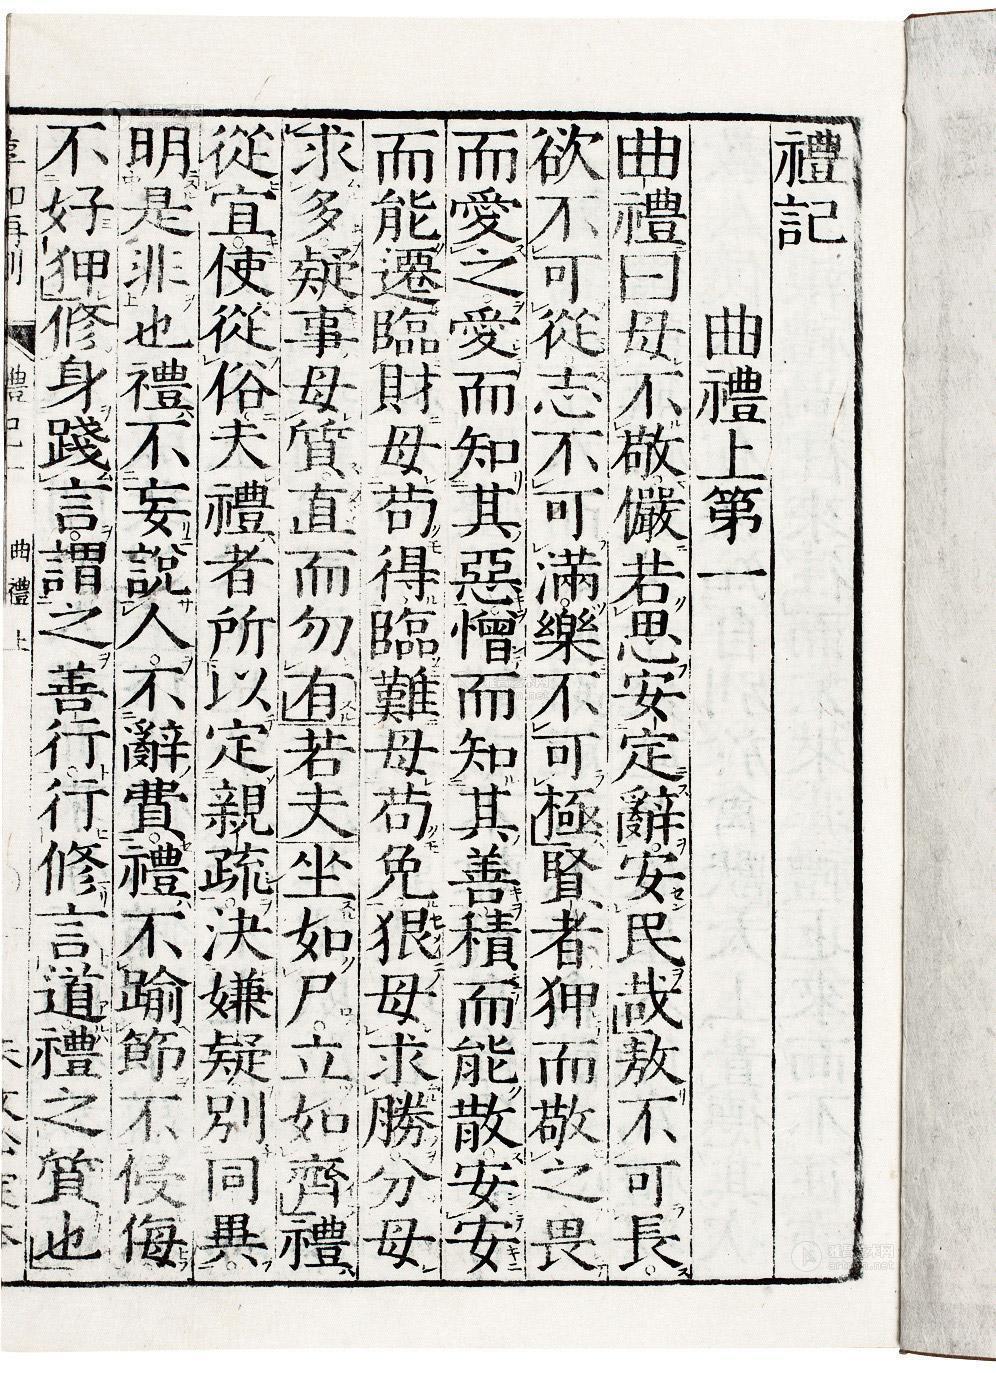 禮記
曲禮上第一
曲禮曰毋不敬儼若思安定辭安民哉敖不可長
欲不可從志不可滿樂不可極賢者狎而敬之畏
而愛之愛而知其惡憎而知其善積而能散安安
而能遷臨財毋苟得臨難毋苟免狠毋求勝分毋
求多疑事毋質直而勿有若夫坐如尸立如齊禮
從宜使從俗夫禮者所以定親疏決嫌疑別同異
明是非也禮不妄說人不辭費禮不踰節不侵侮
不好狎修身踐言謂之善行行修言道禮之質也
曲禮上